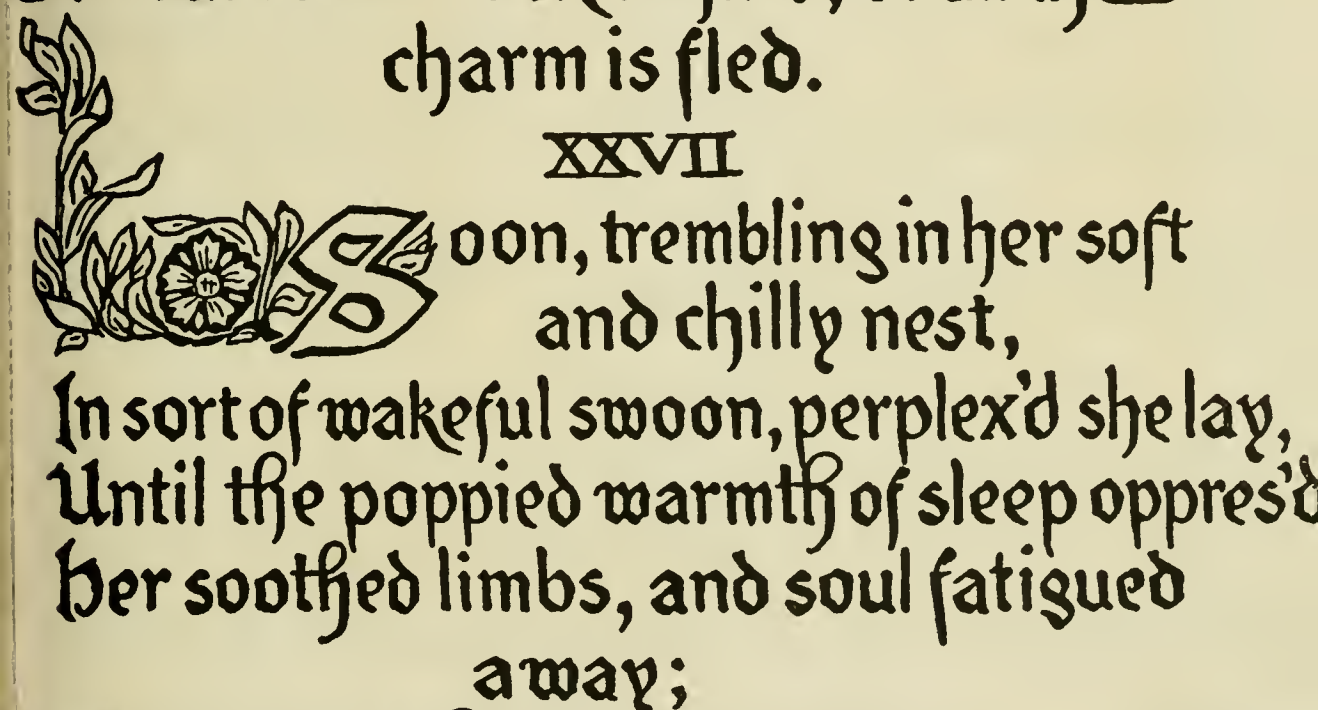 charm is fled.
XXVII
Soon, trembling in her soft
and chilly nest,
In sort of wakeful swoon, perplex'd she lay,
Until the poppied warmth of sleep oppres'd
her soothed limbs, and soul fatigued
away;